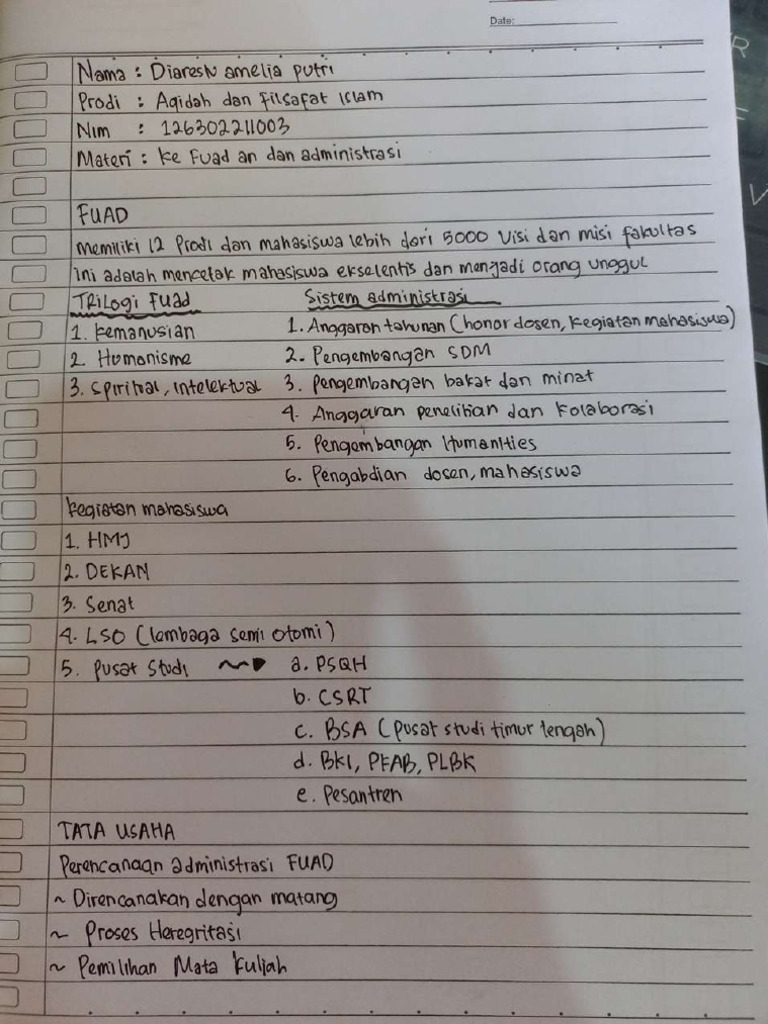 Date:
Nama : Diaresty amelia putri
Prodi : Aqidah dan Filsafat Islam
Nim : 126302211003
Materi : ke Fuad an dan administrasi
FUAD
memiliki 12 Prodi dan mahasiswa lebih dari 5000 Visi dan misi fakultas
ini adalah mencetak mahasiswa ekselentis dan menjadi orang unggul
TRiLogi Fuad Sistem administrasi
1. Kemanusian 1. Anggaran tahunan (honor dosen, kegiatan mahasiswa)
2. Humonisme 2. Pengembangan SDM
3. Spiritual, intelektual 3. Pengembangan bakat dan minat
4. Anggaran penelitian dan kolaborasi
5. Pengembangan Humanities
6. Pengabdian dosen, mahasiswa
Kegiatan mahasiswa
1. HMJ
2. DEKAN
3. Senat
4. LSO (lembaga semi otomi)
5. Pusat Studi a. PSQH
b. CSRT
c. BSA (pusat studi timur tengah)
d. BKI, PKAB, PLBK
e. Pesantren
TATA USAHA
Perencanaan administrasi FUAD
~ Direncanakan dengan matang
~ Proses Heregritasi
~ Pemilihan Mata Kuliah